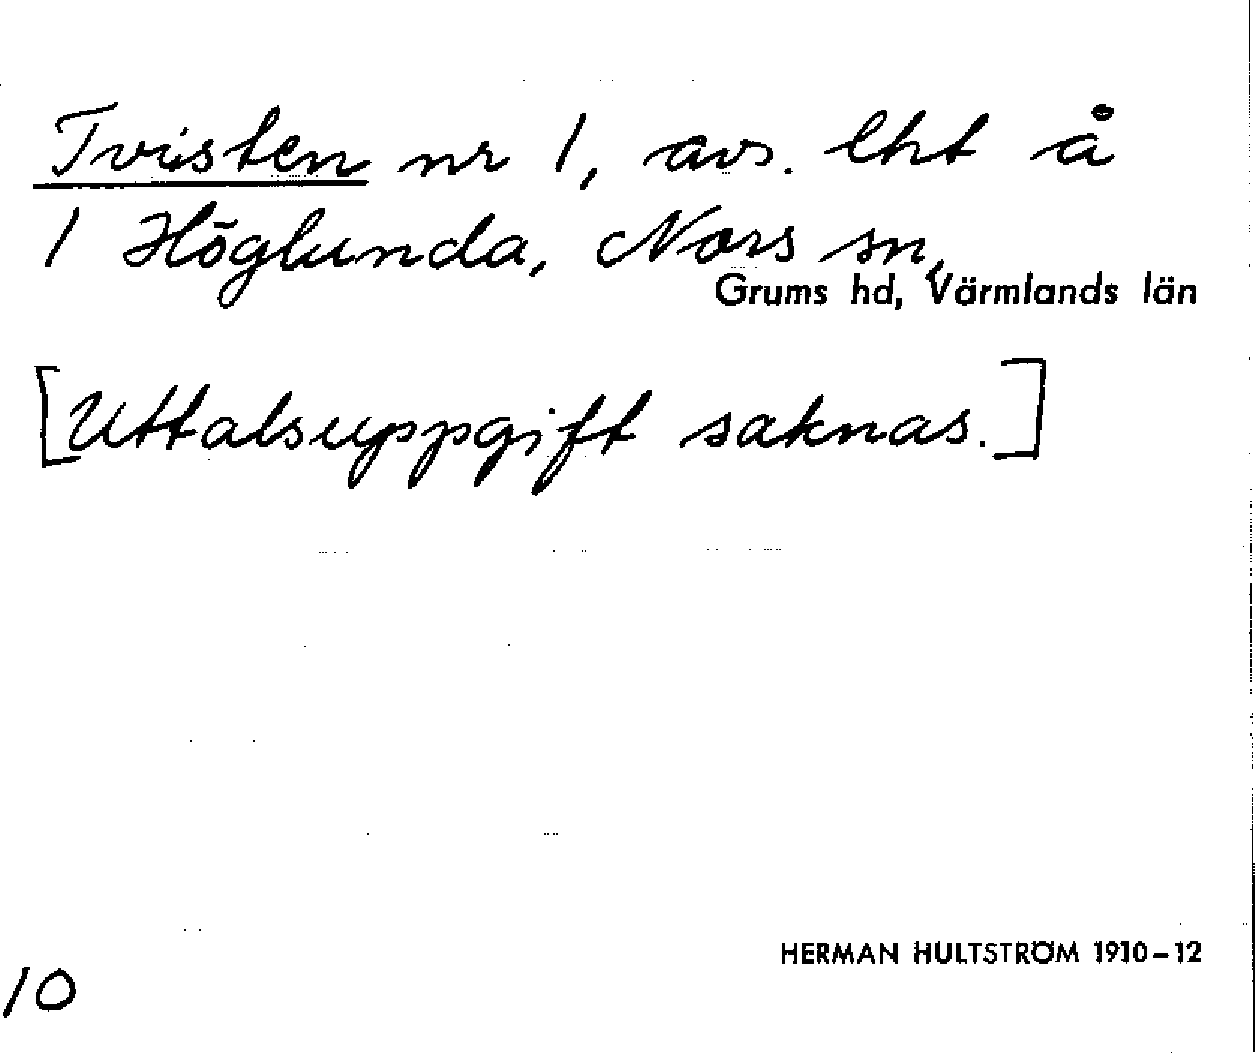 Tvisten nr 1, avs. lht å
1 Höglunda, Nors sn,
Grums hd, Värmlands län
[Uttalsuppgift saknas.]
HERMAN HULTSTRÖM 1910–12
10